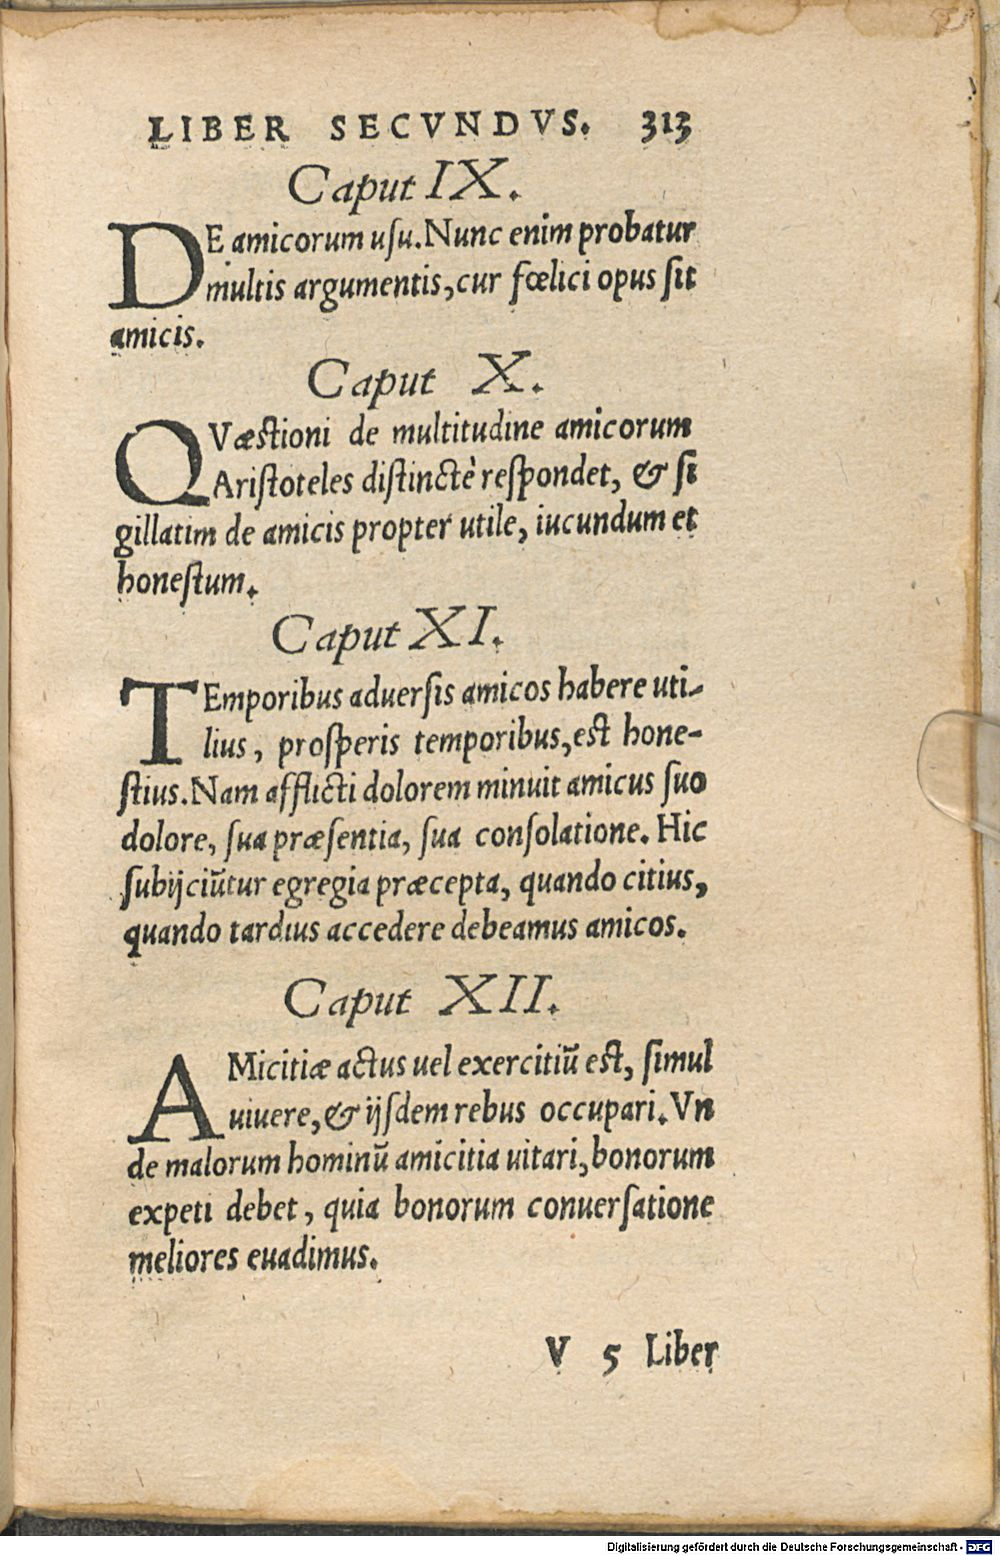 LIBER SECVNDVS. 313
Caput IX.
DE amicorum uſu. Nunc enim probatur
multis argumentis, cur fœlici opus ſit
amicis.
Caput X.
QVæſtioni de multitudine amicorum
Ariſtoteles diſtinctè reſpondet, & ſi
gillatim de amicis propter utile, iucundum et
honeſtum.
Caput XI.
TEmporibus aduerſis amicos habere uti-
lius, proſperis temporibus, eſt hone-
ſtius. Nam afflicti dolorem minuit amicus ſuo
dolore, ſua præſentia, ſua conſolatione. Hic
ſubijciūtur egregia præcepta, quando citius,
quando tardius accedere debeamus amicos.
Caput XII.
AMicitiæ actus uel exercitiū eſt, ſimul
uiuere, & ijſdem rebus occupari. Vn
de malorum hominū amicitia uitari, bonorum
expeti debet, quia bonorum conuerſatione
meliores euadimus.
V 5 Liber
Digitalisierung gefördert durch die Deutsche Forschungsgemeinschaft - DFG